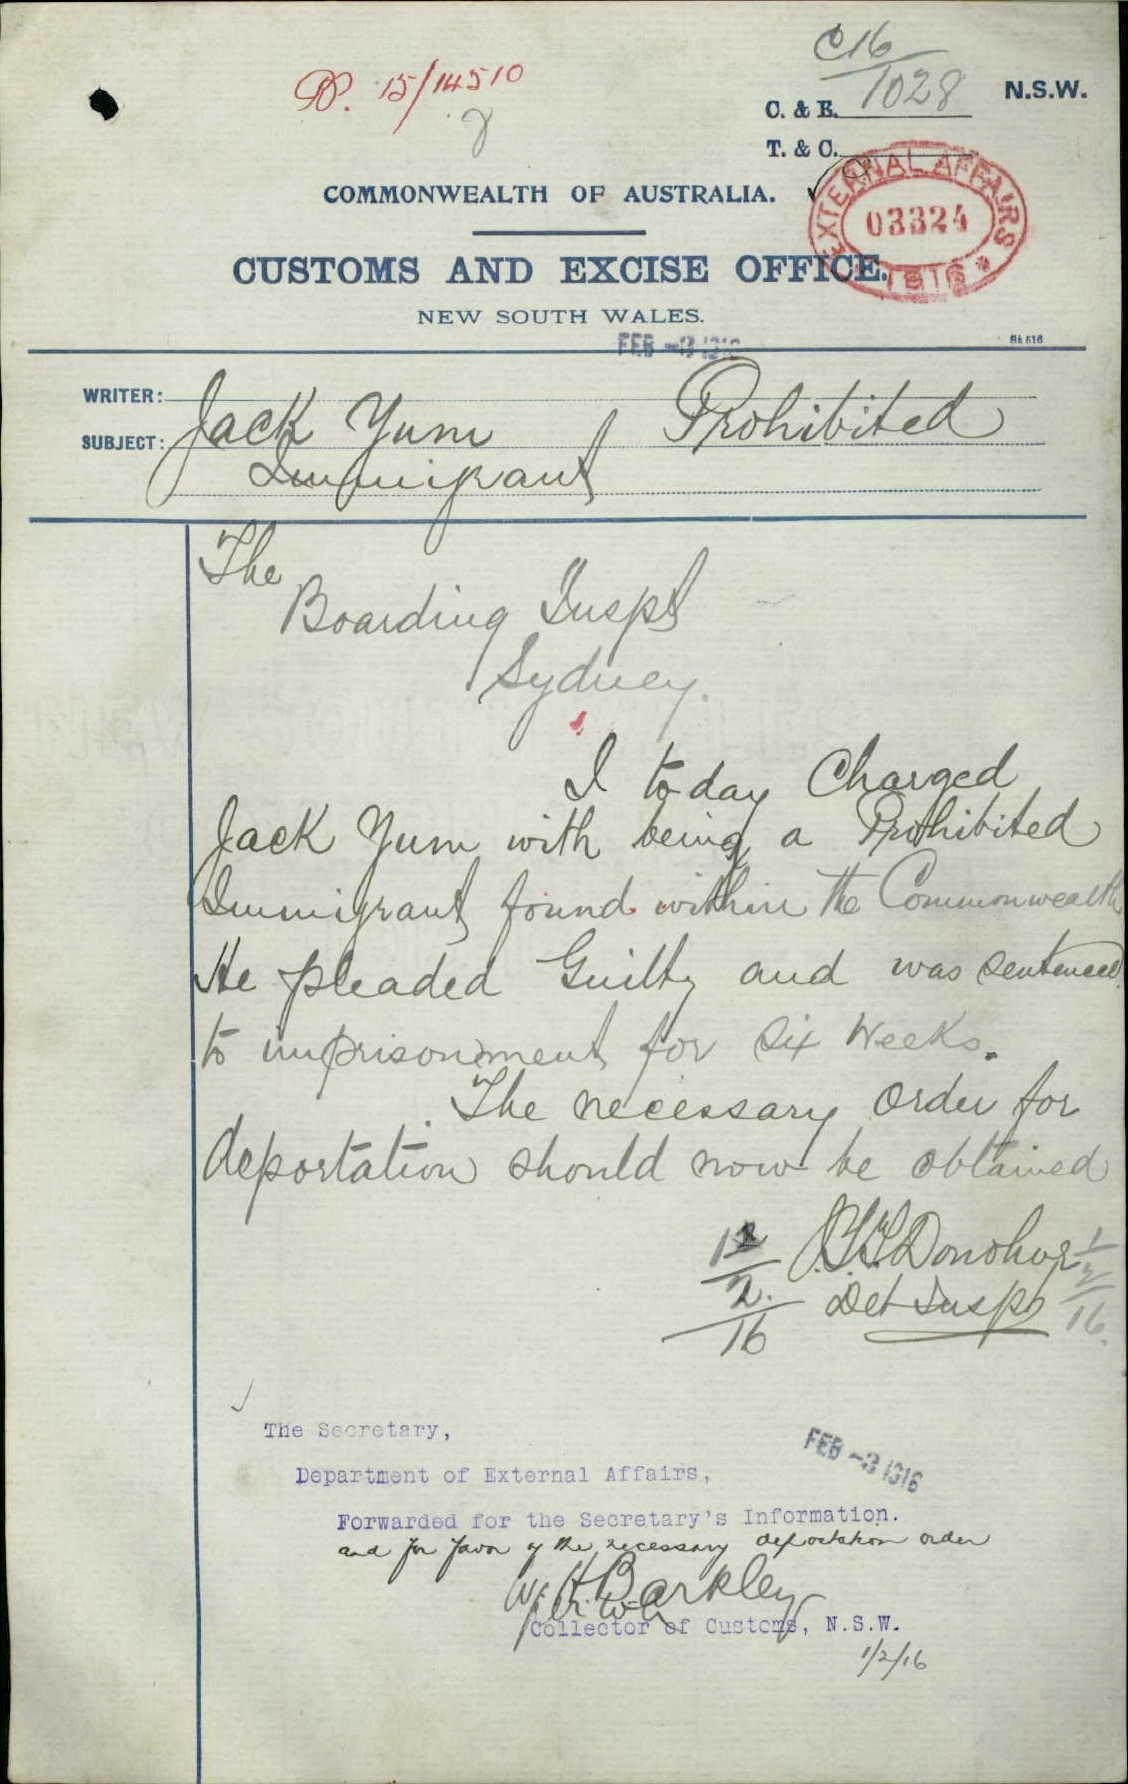 C16
1028
15/14510
C. & E.
N.S.W.
T. & C.
COMMONWEALTH OF AUSTRALIA.
EXTERNAL AFFAIRS
03324
1916
CUSTOMS AND EXCISE OFFICE.
NEW SOUTH WALES.
FEB -3 1916
WRITER:
SUBJECT: Jack Yum Prohibited
Immigrant
The
Boarding Inspt
Sydney.
I today Charged
Jack Yum with being a Prohibited
Immigrant found within the Commonwealth
He pleaded Guilty and was sentenced
to imprisonment for six weeks.
The necessary order for
deportation should now be obtained
Donohue
Det Insp
1/2/16
The Secretary,
Department of External Affairs,
FEB -3 1916
Forwarded for the Secretary's Information.
and for favor of the necessary deportation order
W. H. Barkley
Collector of Customs, N.S.W.
1/2/16